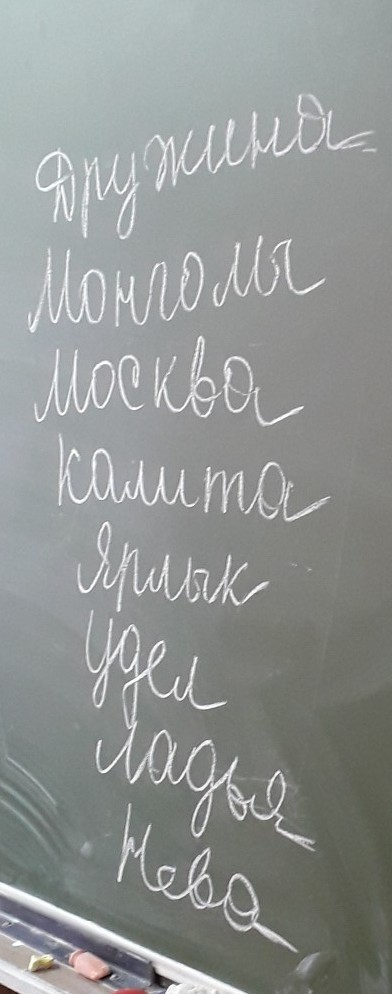 Дружина
Монголы
Москва
Калита
Ярлык
Удел
Ладья
Нева